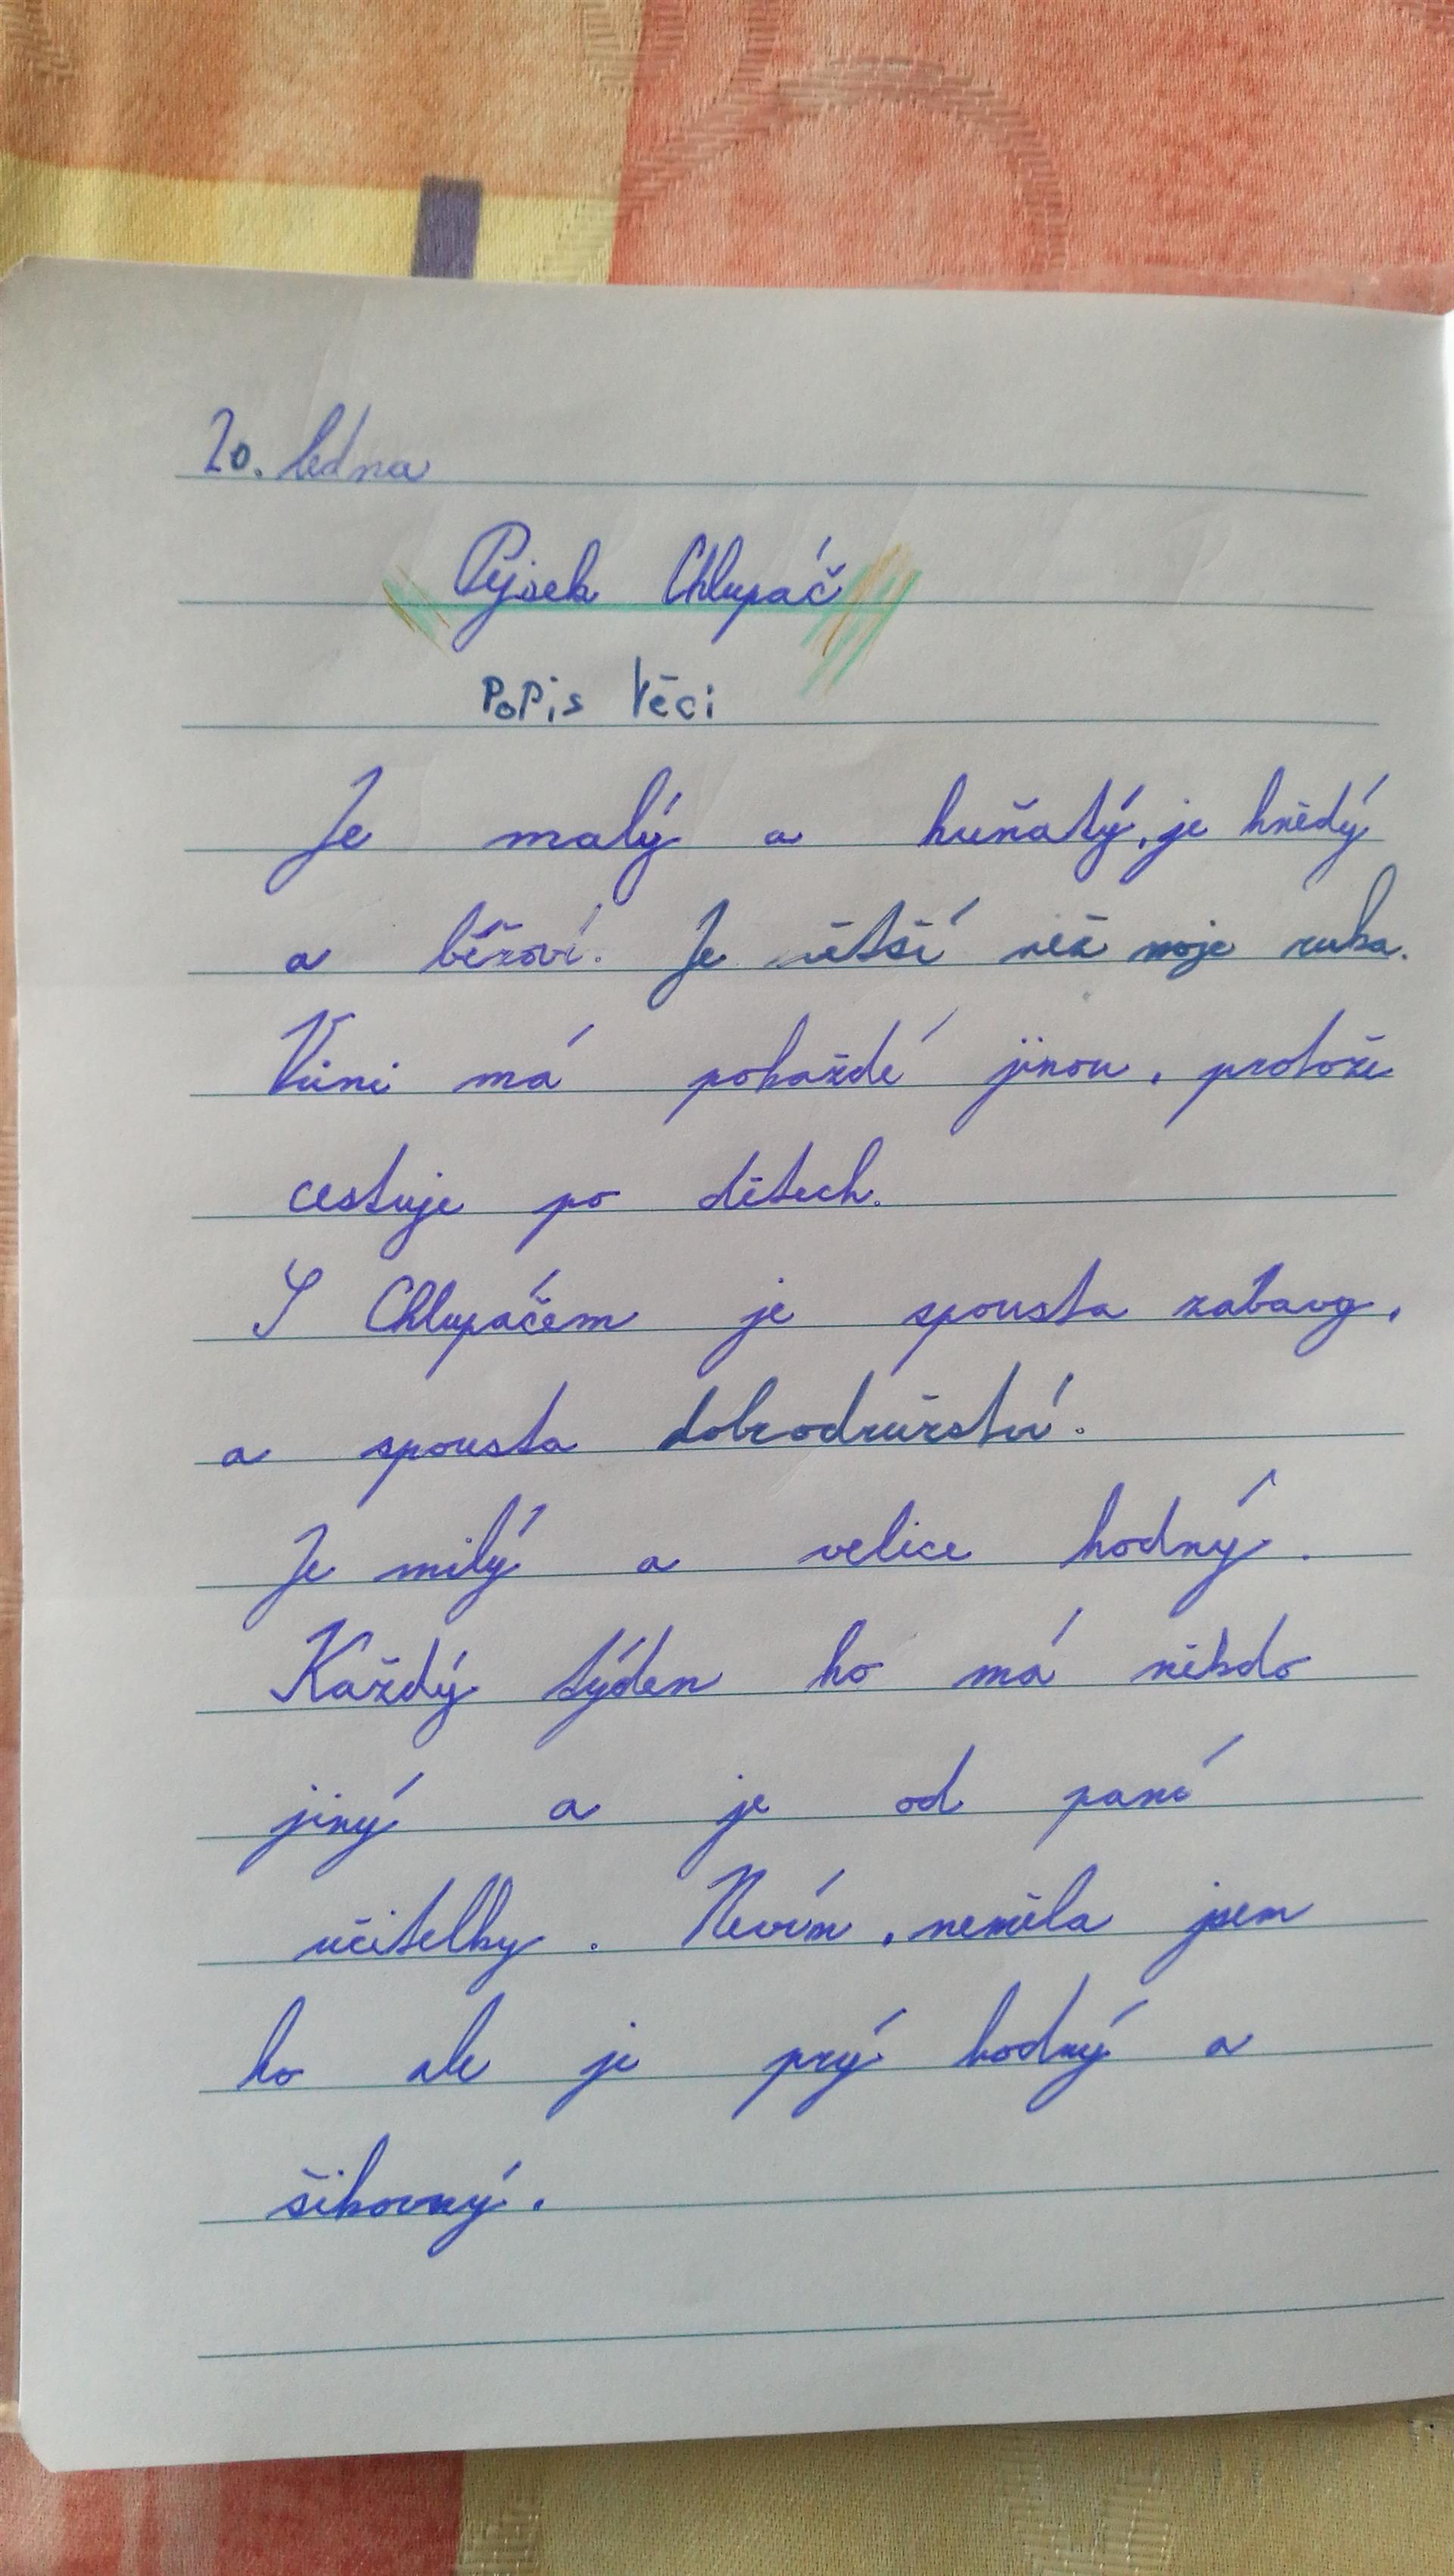 20. ledna
Pejsek Chlupáč
Popis Věci
Je malý a huňatý, je hnědý
a béžoví. Je větší něž moje ruka.
Vůni má pokaždé jinou, protože
cestuje po dětech.
S Chlupáčem je spousta zábavy,
a spousta dobrodružství.
Je milý a velice hodný.
Každý týden ho má někdo
jiný a je od paní
učitelky. Nevím, neměla jsem
ho ale je prý hodný a
šikovný.